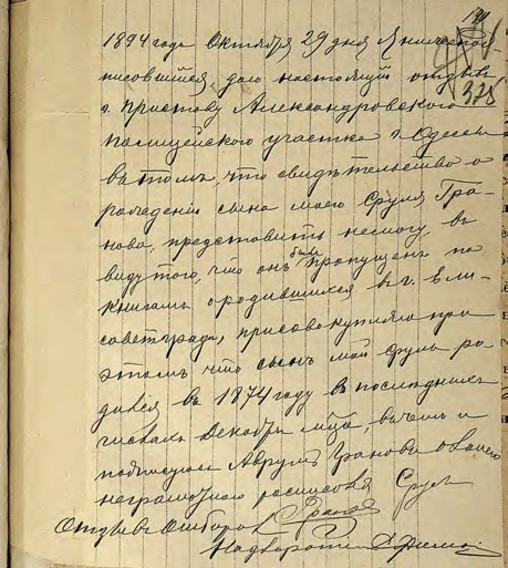 375
1894 года Октября 29 дня Я нижепод-
писовшійся, даю настоящій отзывъ
г. приставу Александровского
полицейского участка г. Одессы
въ томъ, что свидѣтельство о
рождении сына моего Сруля Гра-
нова, представить немогу, въ
виду того, что онъ былъ пропущенъ по
книгамъ ородившихся въ г. Ели-
саветградѣ, присовокупляю при
этомъ что сынъ мой Сруль ро-
дился въ 1874 году въ последнихъ
числахъ Декабря мѣца, въ чемъ и
подписуюсь Аврумъ Грановъ
неграмотного росписовся Срулъ
Отзывъ отбиралъ Грановъ
Надзиратель